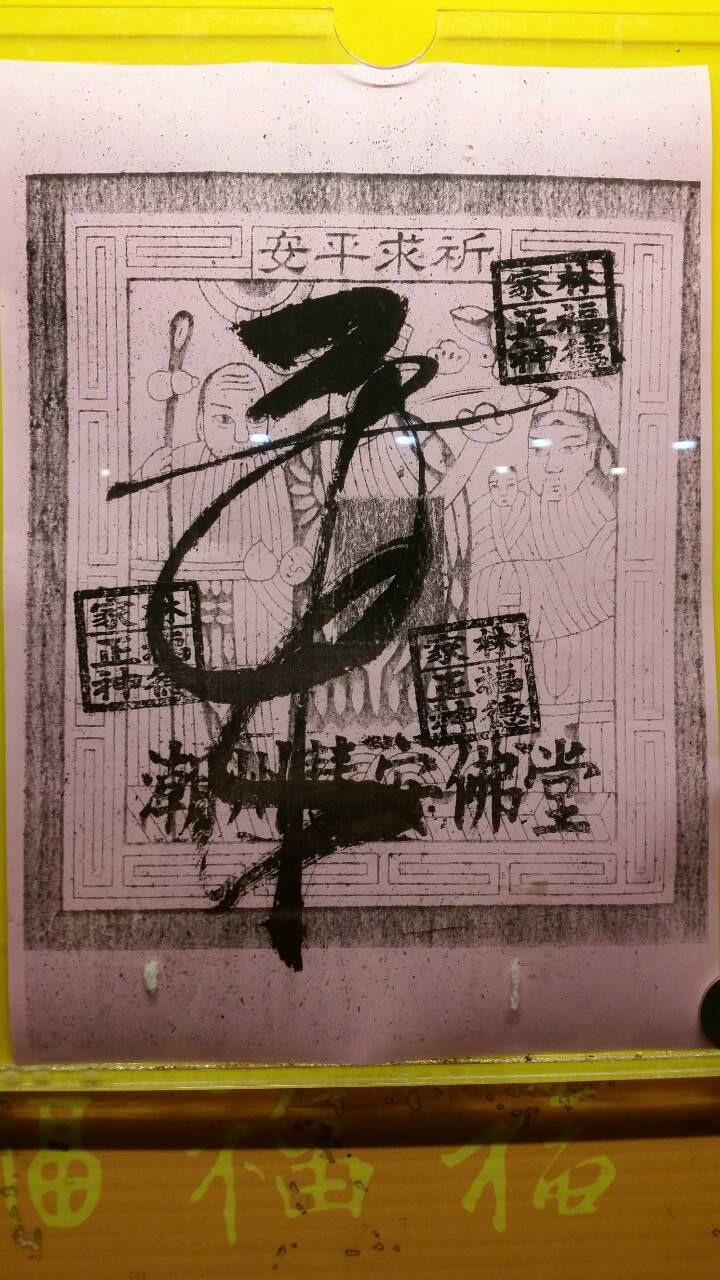 祈求平安
林家
福德
正神
林家
福德
正神
林家
福德
正神
潮州佛堂
福福福